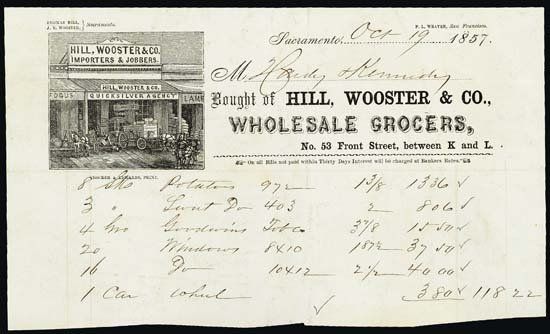 THOMAS HILL,
WOOSTER, } Sacramento.
P. L. WEAVER, San Francisco.
Sacramento, Oct 19 1857.
HILL, WOOSTER & CO.
IMPORTERS & JOBBERS.
HILL, WOOSTER & CO.
FOGUS QUICKSILVER AGENCY LAM
CROCKER & EDWARDS, PRINT.
M Hardy & Kennedy
Bought of HILL, WOOSTER & CO.,
WHOLESALE GROCERS,
No. 53 Front Street, between K and L.
On all Bills not paid within Thirty Days Interest will be charged at Bankers Rates.
8 Sks Potatoes 972 1 3/8 13 36 ✓
3 " Sweet Do 403 2 8 06 ✓
4 Gro Goodwins Tobco 3 7/8 15 50 ✓
20 Windows 8x10 187½ 37 50 ✓
16 Do 10x12 2½ 40 00 ✓
1 Car wheel 3 80 ✓ 118 22